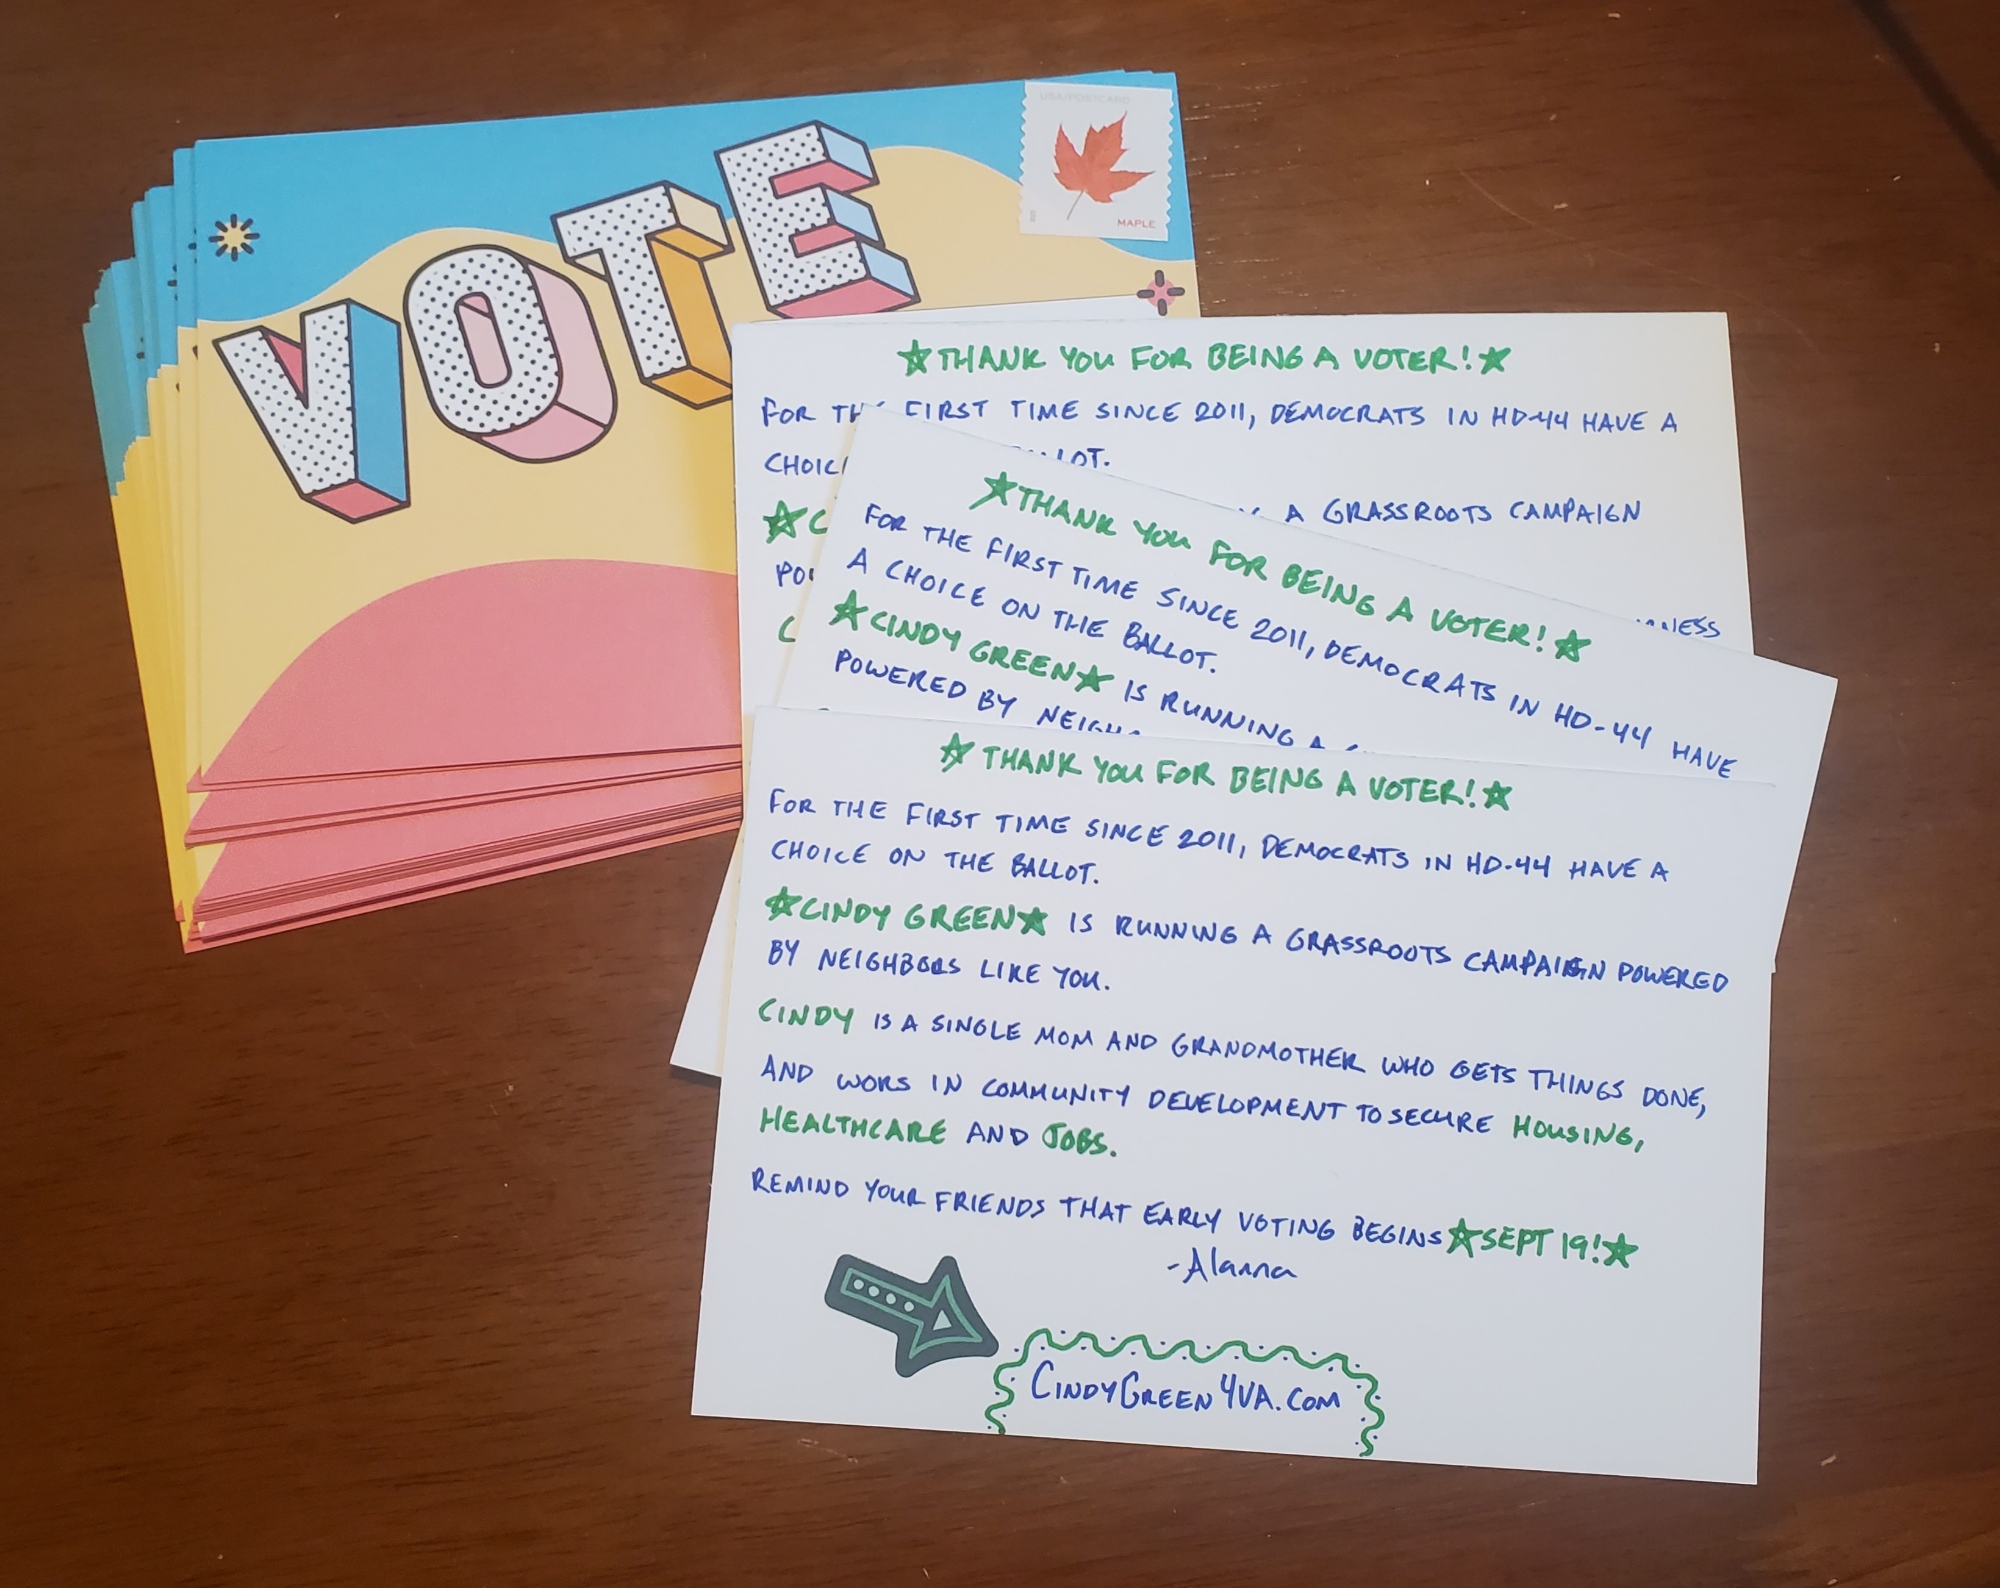 VOTE
USA/POSTCARD
MAPLE
☆THANK YOU FOR BEING A VOTER!☆
FOR THE FIRST TIME SINCE 2011, DEMOCRATS IN HD-44 HAVE A
CHOIC LOT.
☆C A GRASSROOTS CAMPAIGN
POW
C NESS
☆THANK YOU FOR BEING A VOTER!☆
FOR THE FIRST TIME SINCE 2011, DEMOCRATS IN HD-44 HAVE
A CHOICE ON THE BALLOT.
☆CINDY GREEN☆ IS RUNNING A
POWERED BY NEIGH
☆THANK YOU FOR BEING A VOTER!☆
FOR THE FIRST TIME SINCE 2011, DEMOCRATS IN HD-44 HAVE A
CHOICE ON THE BALLOT.
☆CINDY GREEN☆ IS RUNNING A GRASSROOTS CAMPAIGN POWERED
BY NEIGHBORS LIKE YOU.
CINDY IS A SINGLE MOM AND GRANDMOTHER WHO GETS THINGS DONE,
AND WORS IN COMMUNITY DEVELOPMENT TO SECURE HOUSING,
HEALTHCARE AND JOBS.
REMIND YOUR FRIENDS THAT EARLY VOTING BEGINS☆SEPT 19!☆
-Alanna
CINDYGREEN4VA.COM